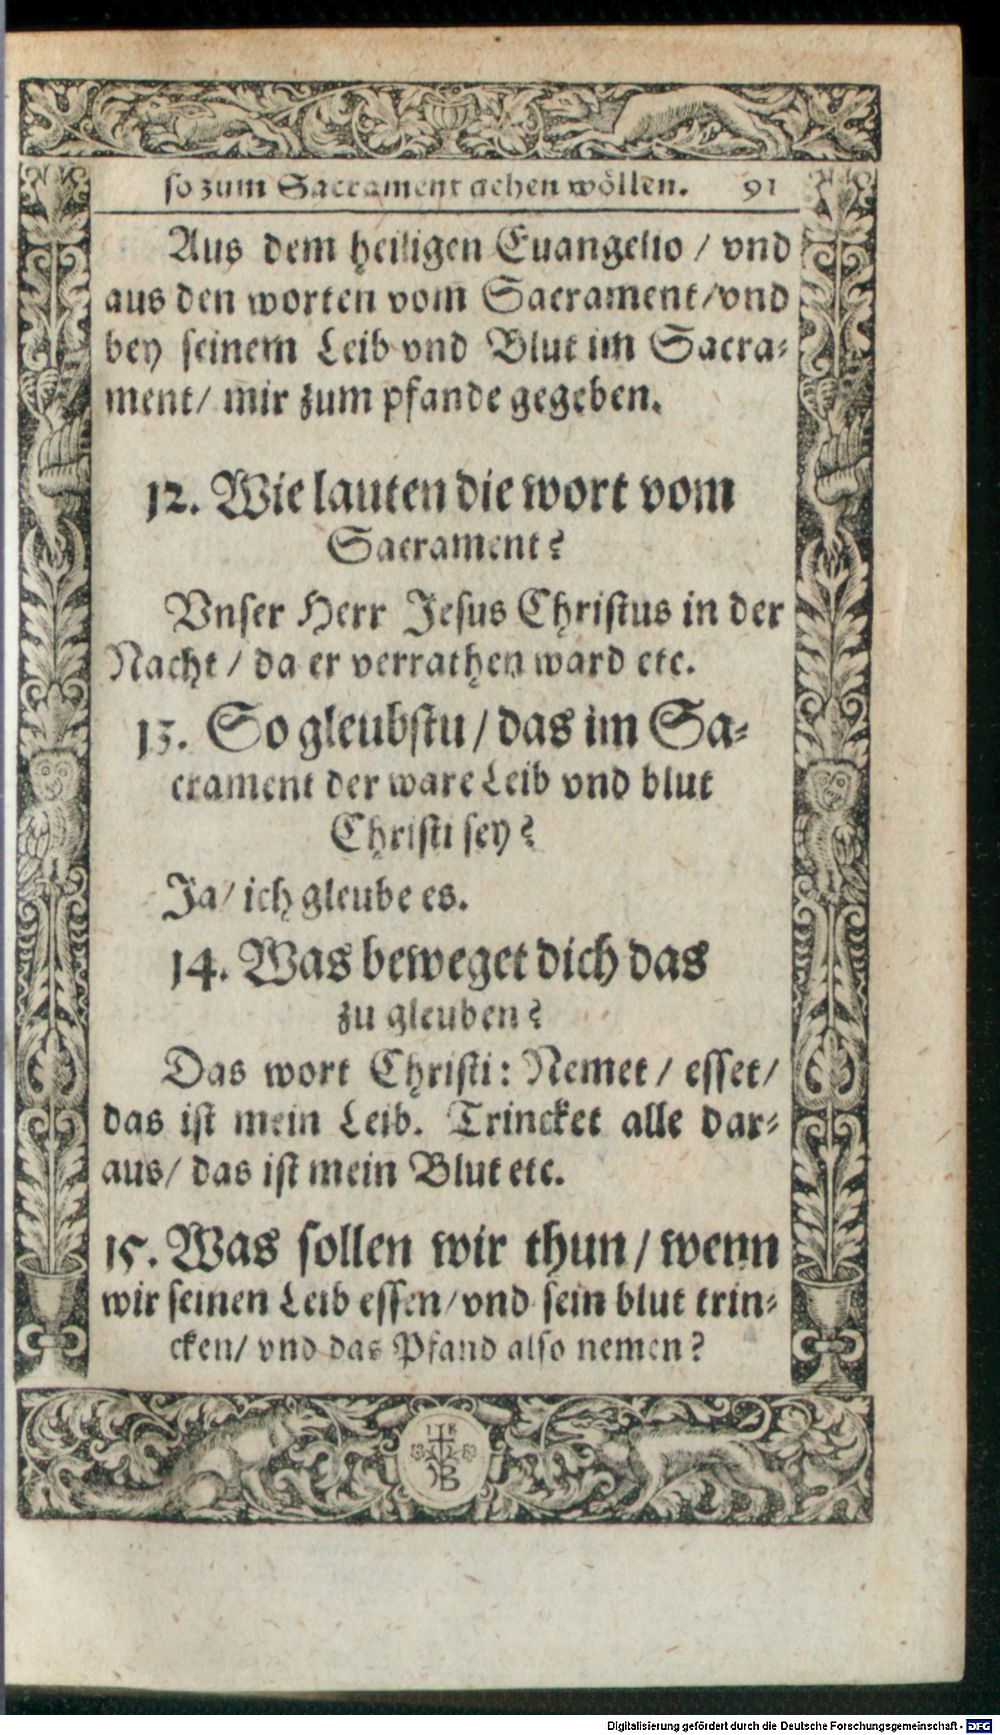 so zum Sacrament gehen wöllen. 91
Aus dem heiligen Euangelio / vnd
aus den worten vom Sacrament / vnd
bey seinem Leib vnd Blut im Sacra-
ment / mir zum pfande gegeben.
12. Wie lauten die wort vom
Sacrament?
Vnser Herr Jesus Christus in der
Nacht / da er verrathen ward etc.
13. So gleubstu / das im Sa-
crament der ware Leib vnd blut
Christi sey?
Ja / ich gleube es.
14. Was beweget dich das
zu gleuben?
Das wort Christi: Nemet / esset /
das ist mein Leib. Trincket alle dar-
aus / das ist mein Blut etc.
15. Was sollen wir thun / wenn
wir seinen Leib essen / vnd sein blut trin-
cken / vnd das Pfand also nemen?
Digitalisierung gefördert durch die Deutsche Forschungsgemeinschaft - DFG